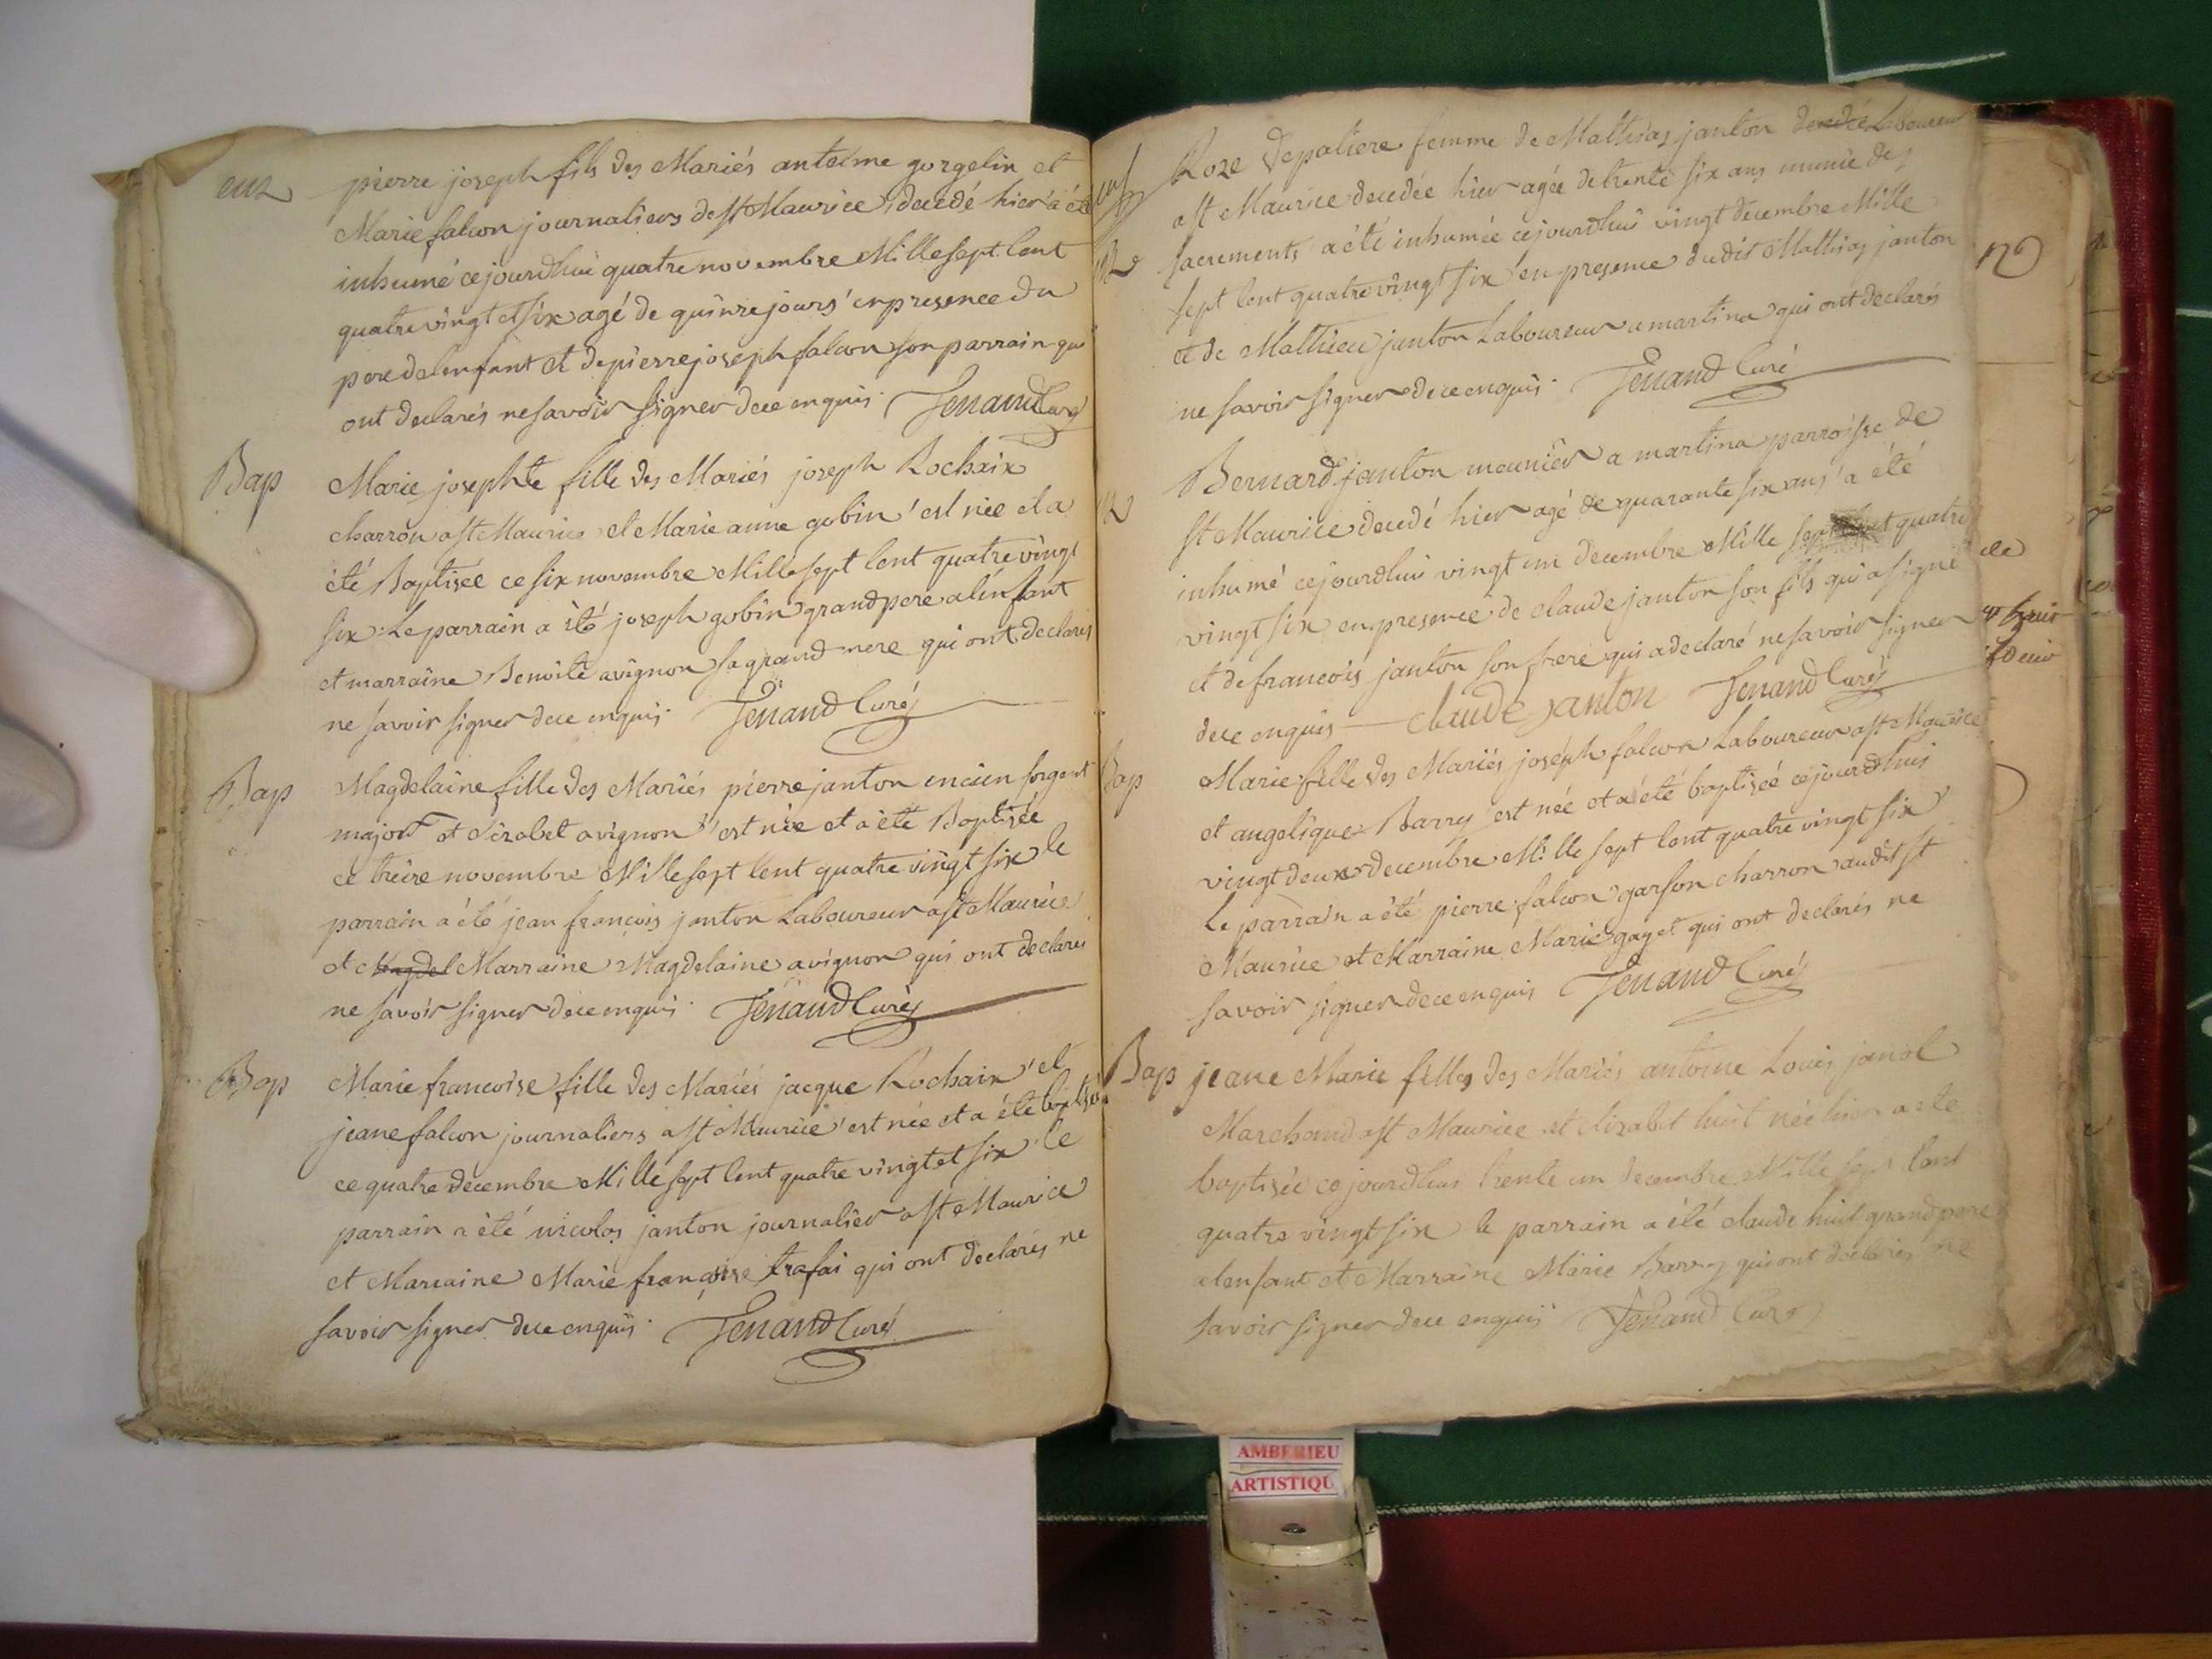 pierre joseph fils des Mariés antelme gorgelin et
Marie falcon journaliers de st Maurice, decedé hier a été
inhumé cejourdhui quatre novembre Mille sept Cent
quatre vingt et six agé de quinze jours en presence du
pere de lenfant et de pierre joseph falcon son parrain qui
ont declarés ne savoir signer de ce enquis. Tenand Curé
Bap
Marie josephte fille des Mariés joseph Rochaix
charron a st Maurice et Marie anne gobin est née et a
été Baptisée ce six novembre Mille sept Cent quatre vingt
six. Le parrain a été joseph gobin grand pere a lenfant
et marraine Benoite avignon sa grand mere qui ont declarés
ne savoir signer de ce enquis. Tenand Curé
Bap
Magdelaine fille des Mariés pierre janton encien sergent
major et Elizabet avignon est née et a été Baptisée
ce treize novembre Mille sept Cent quatre vingt six le
parrain a été jean francois janton Laboureur a st Maurice
et Magdel Marraine Magdelaine avignon qui ont declarés
ne savoir signer de ce enquis. Tenand Curé
Bap
Marie francoise fille des Mariés jacque Rochaix et
jeane falcon journaliers a st Maurice est née et a été baptisée
ce quatre decembre Mille sept Cent quatre vingt et six le
parrain a été nicolas janton journalier a st Maurice
et Marraine Marie francoise trafai qui ont declarés ne
savoir signer de ce enquis. Tenand Curé
Roze Depaliere femme de Mathias janton decedée Laboureur
a st Maurice decedée hier agée de trente six ans munie des
sacrements a été inhumée cejourdhui vingt decembre Mille
sept Cent quatre vingt six en presence dudit Mathias janton
et de Mathieu janton Laboureur a martina qui ont declarés
ne savoir signer de ce enquis. Tenand Curé
Bernard janton meunier a martina parroisse de
st Maurice decedé hier agé de quarante six ans a été
inhumé cejourdhui vingt un decembre Mille sept Cent quatre
vingt six en presence de claude janton son fils qui a signé
et de francois janton son frere qui a declaré ne savoir signer
de ce enquis claude janton Tenand Curé
Bap
Marie fille des Mariés joseph falcon Laboureur a st Maurice
et angelique Barry est née et a été baptisée cejourdhui
vingt deux decembre Mille sept Cent quatre vingt six
Le parrain a été pierre falcon garson charron audit st
Maurice et Marraine Marie gayet qui ont declarés ne
savoir signer de ce enquis Tenand Curé
Bap
jeane Marie filles des Mariés antoine Louis janot
Marchand a st Maurice et elizabet huit née hier a ete
baptisée ce jourdhui trente un decembre Mille sept Cent
quatre vingt six le parrain a été claude huit grand pere
a lenfant et Marraine Marie Barry qui ont declarés ne
savoir signer de ce enquis Tenand Curé
AMBERIEU
ARTISTIQU